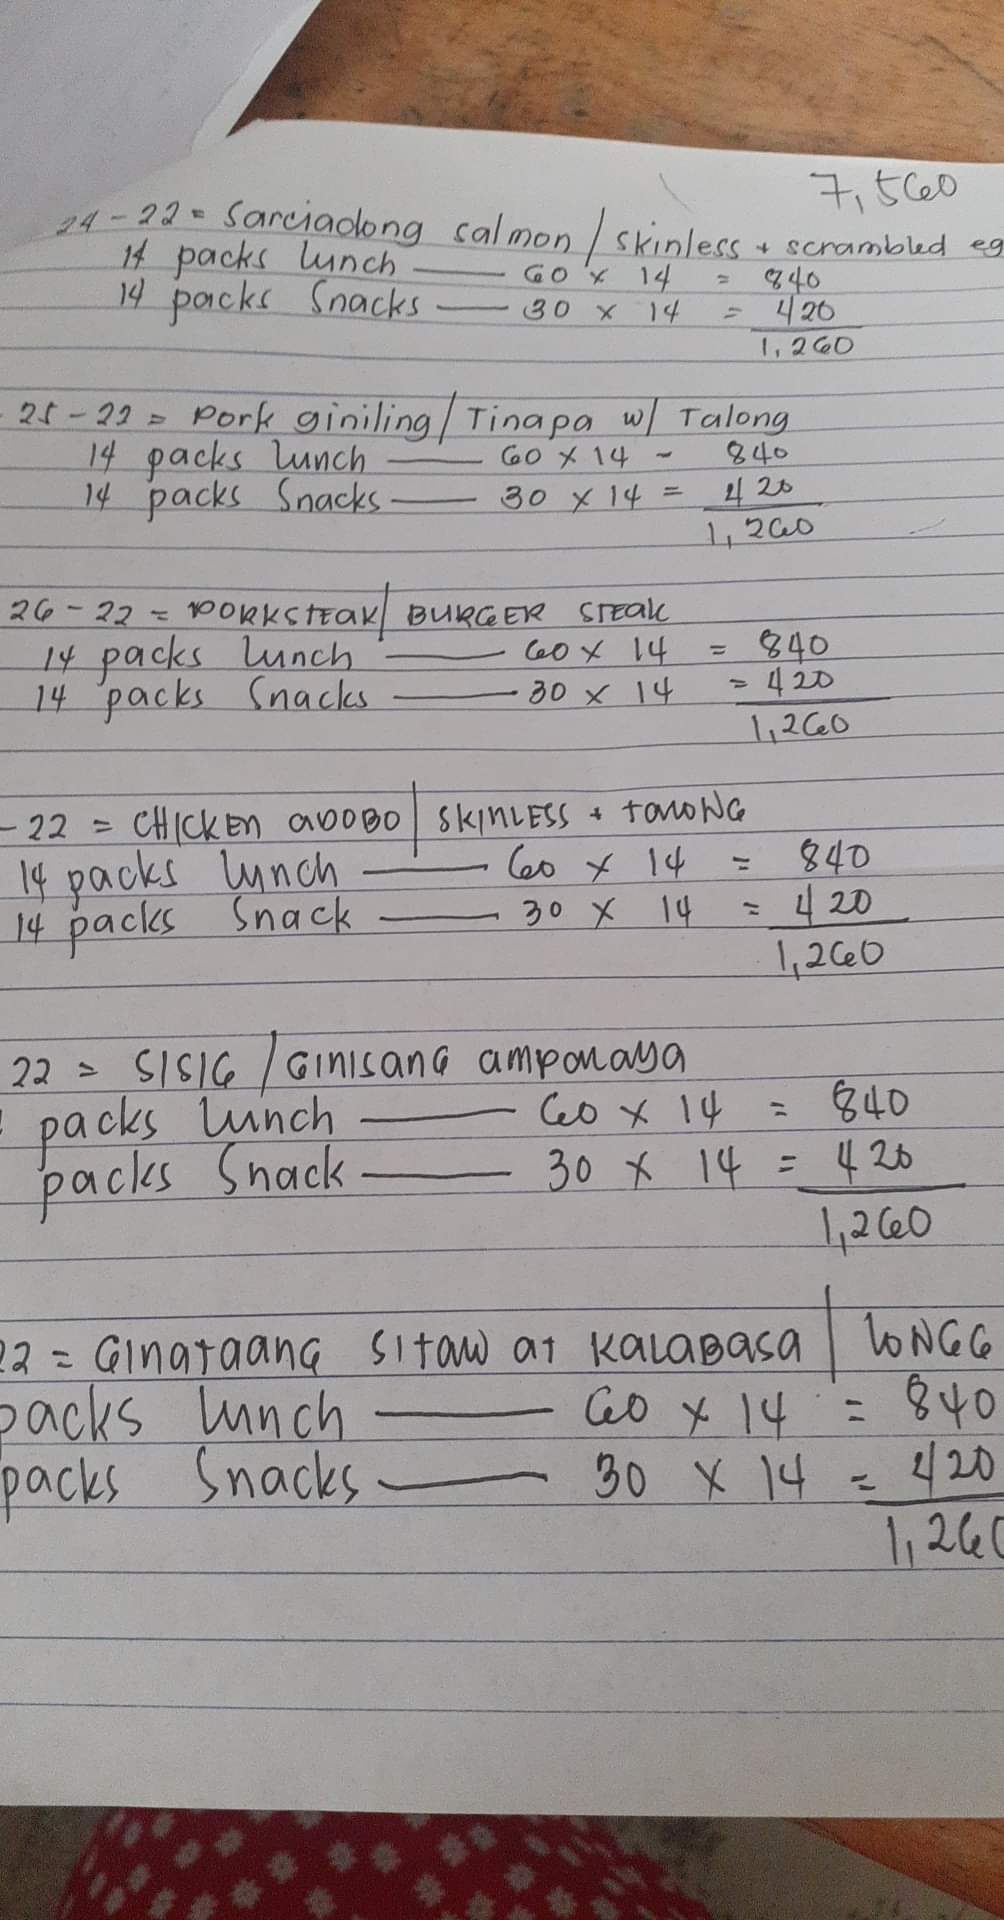 7,560
24-22= Sarciadong salmon / skinless + scrambled eg
14 packs lunch — 60 x 14 = 840
14 packs Snacks — 30 x 14 = 420
1,260
25-22= Pork giniling / Tinapa w/ Talong
14 packs lunch — 60 x 14 - 840
14 packs Snacks — 30 x 14 = 420
1,260
26-22= PORKSTEAK / BURGER STEAK
14 packs lunch — 60 x 14 = 840
14 packs Snacks — 30 x 14 = 420
1,260
-22 = CHICKEN ADOBO / SKINLESS + TALONG
14 packs lunch — 60 x 14 = 840
14 packs Snack — 30 x 14 = 420
1,260
22 = SISIG / GINISANG AMPALAYA
packs lunch — 60 x 14 = 840
packs Snack — 30 x 14 = 420
1,260
22 = GINATAANG SITAW AT KALABASA / LONGG
packs lunch — 60 x 14 = 840
packs Snacks — 30 x 14 = 420
1,260